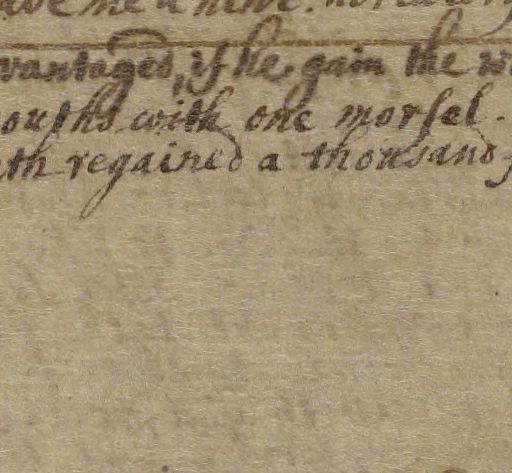 vantaged, if he gain the
ouths with one morsel.
th regained a thousand